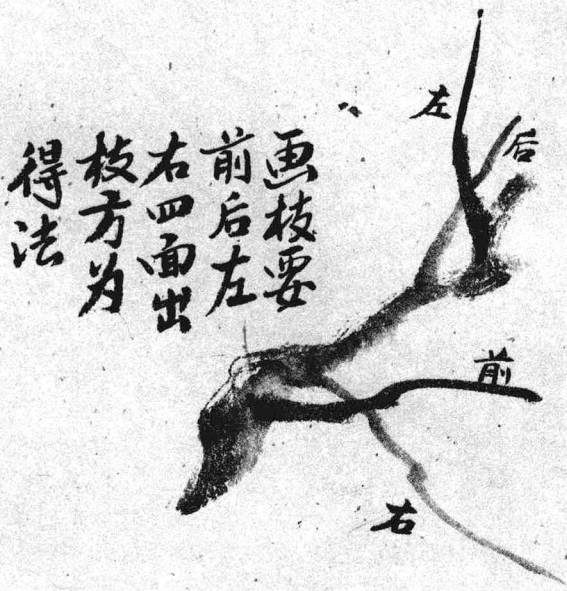 画枝要
前后左
右四面出
枝方为
得法
左
后
前
右